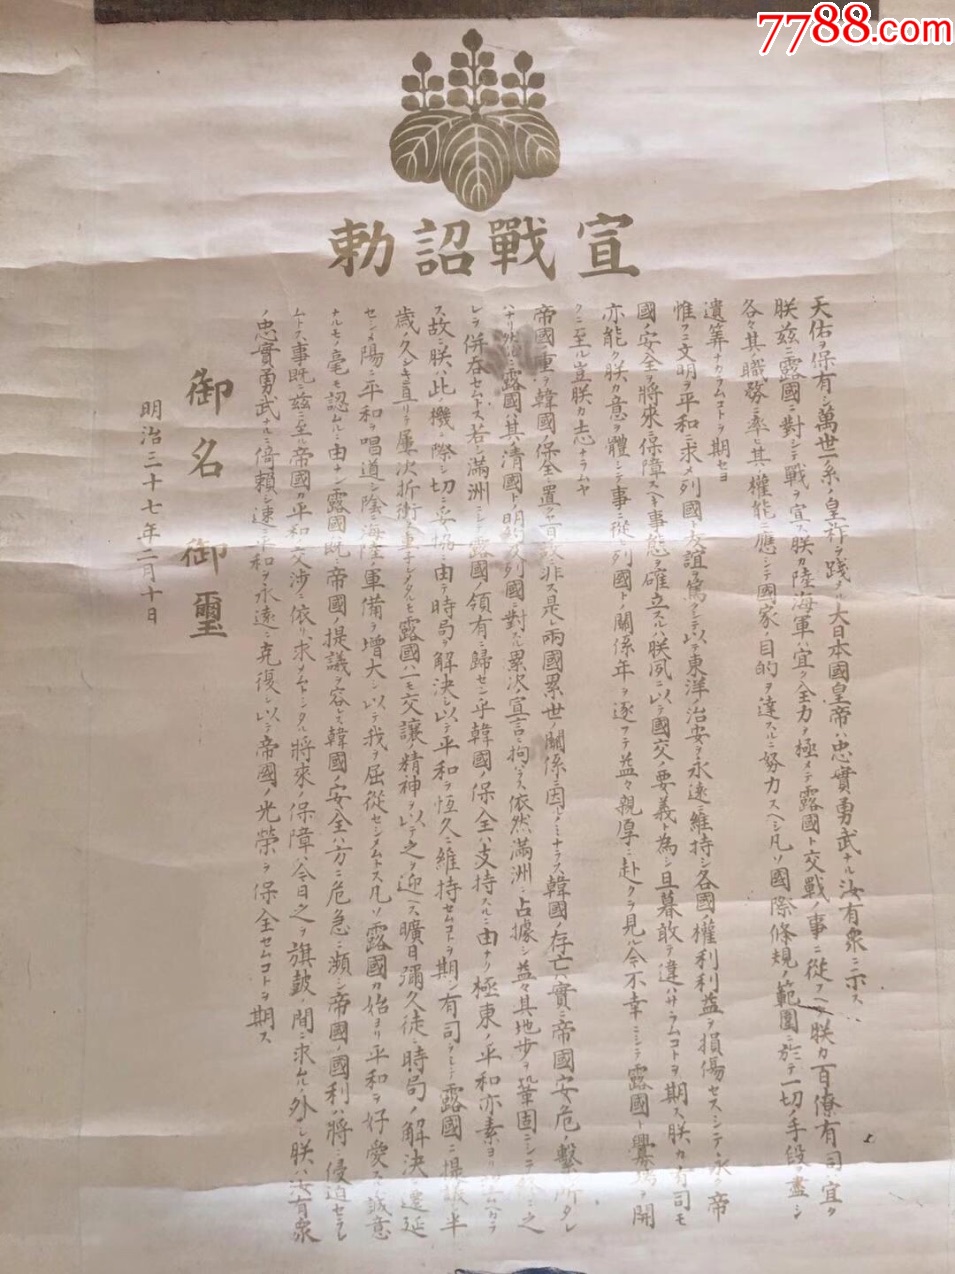 宣戰詔勅
天佑ヲ保有シ萬世一系ノ皇祚ヲ踐メル大日本國皇帝ハ忠實勇武ナル汝有衆ニ示ス
朕玆ニ露國ニ對シテ戰ヲ宣ス朕カ陸海軍ハ宜ク全力ヲ極メテ露國ト交戰ノ事ニ從フヘク朕カ百僚有司ハ宜ク
各々其ノ職務ニ率ヒ其ノ權能ニ應シテ國家ノ目的ヲ達スルニ努力スヘシ凡ソ國際條規ノ範圍ニ於テ一切ノ手段ヲ盡シ
遺筭ナカラムコトヲ期セヨ
惟フニ文明ヲ平和ニ求メ列國ト友誼ヲ篤クシテ以テ東洋ノ治安ヲ永遠ニ維持シ各國ノ權利利益ヲ損傷セスシテ永ク帝
國ノ安全ヲ將來ニ保障スヘキ事態ヲ確立スルハ朕夙ニ以テ國交ノ要義ト為シ旦暮敢テ違ハサラムコトヲ期ス朕カ有司モ
亦能ク朕カ意ヲ體シテ事ニ從ヒ列國トノ關係年ヲ逐フテ益々親厚ニ赴クヲ見ル今不幸ニシテ露國ト釁端ヲ開
クニ至ル豈朕カ志ナラムヤ
帝國ノ重ヲ韓國ノ保全ニ置クヤ一日ノ故ニ非ス是レ兩國累世ノ關係ニ因ルノミナラス韓國ノ存亡ハ實ニ帝國安危ノ繋ル所タレ
ハナリ然ルニ露國ハ其ノ清國トノ明約及列國ニ對スル累次ノ宣言ニ拘ハラス依然滿洲ニ占據シ益々其地歩ヲ鞏固ニシテ終ニ之
レヲ併呑セムトス若シ滿洲ニシテ露國ノ領有ニ歸セン乎韓國ノ保全ハ支持スルニ由ナク極東ノ平和亦素ヨリ望ムヘカラ
ス故ニ朕ハ此ノ機ニ際シ切ニ妥協ニ由テ時局ヲ解決シ以テ平和ヲ恆久ニ維持セムコトヲ期シ有司ヲシテ露國ニ提議シ半
歳ノ久シキニ亙リテ屢次折衝ヲ重ネシメタルモ露國ハ一モ交讓ノ精神ヲ以テ之ヲ迎ヘス曠日彌久徒ニ時局ノ解決ヲ遷延
セシメ陽ニ平和ヲ唱道シ陰ニ海陸ノ軍備ヲ增大シ以テ我ヲ屈從セシメムトス凡ソ露國カ始ヨリ平和ヲ好愛スルノ誠意
ナルモノ毫モ認ムルニ由ナシ露國ハ既ニ帝國ノ提議ヲ容レス韓國ノ安全ハ方ニ危急ニ瀕シ帝國ノ國利ハ將ニ侵迫セラレ
ムトス事既ニ玆ニ至ル帝國カ平和ノ交渉ニ依リ求メムトシタル將來ノ保障ハ今日之ヲ旗鼓ノ間ニ求ムルノ外ナシ朕ハ汝有衆
ノ忠實勇武ナルニ倚賴シ速ニ平和ヲ永遠ニ克復シ以テ帝國ノ光榮ヲ保全セムコトヲ期ス
御名御璽
明治三十七年二月十日
7788.com